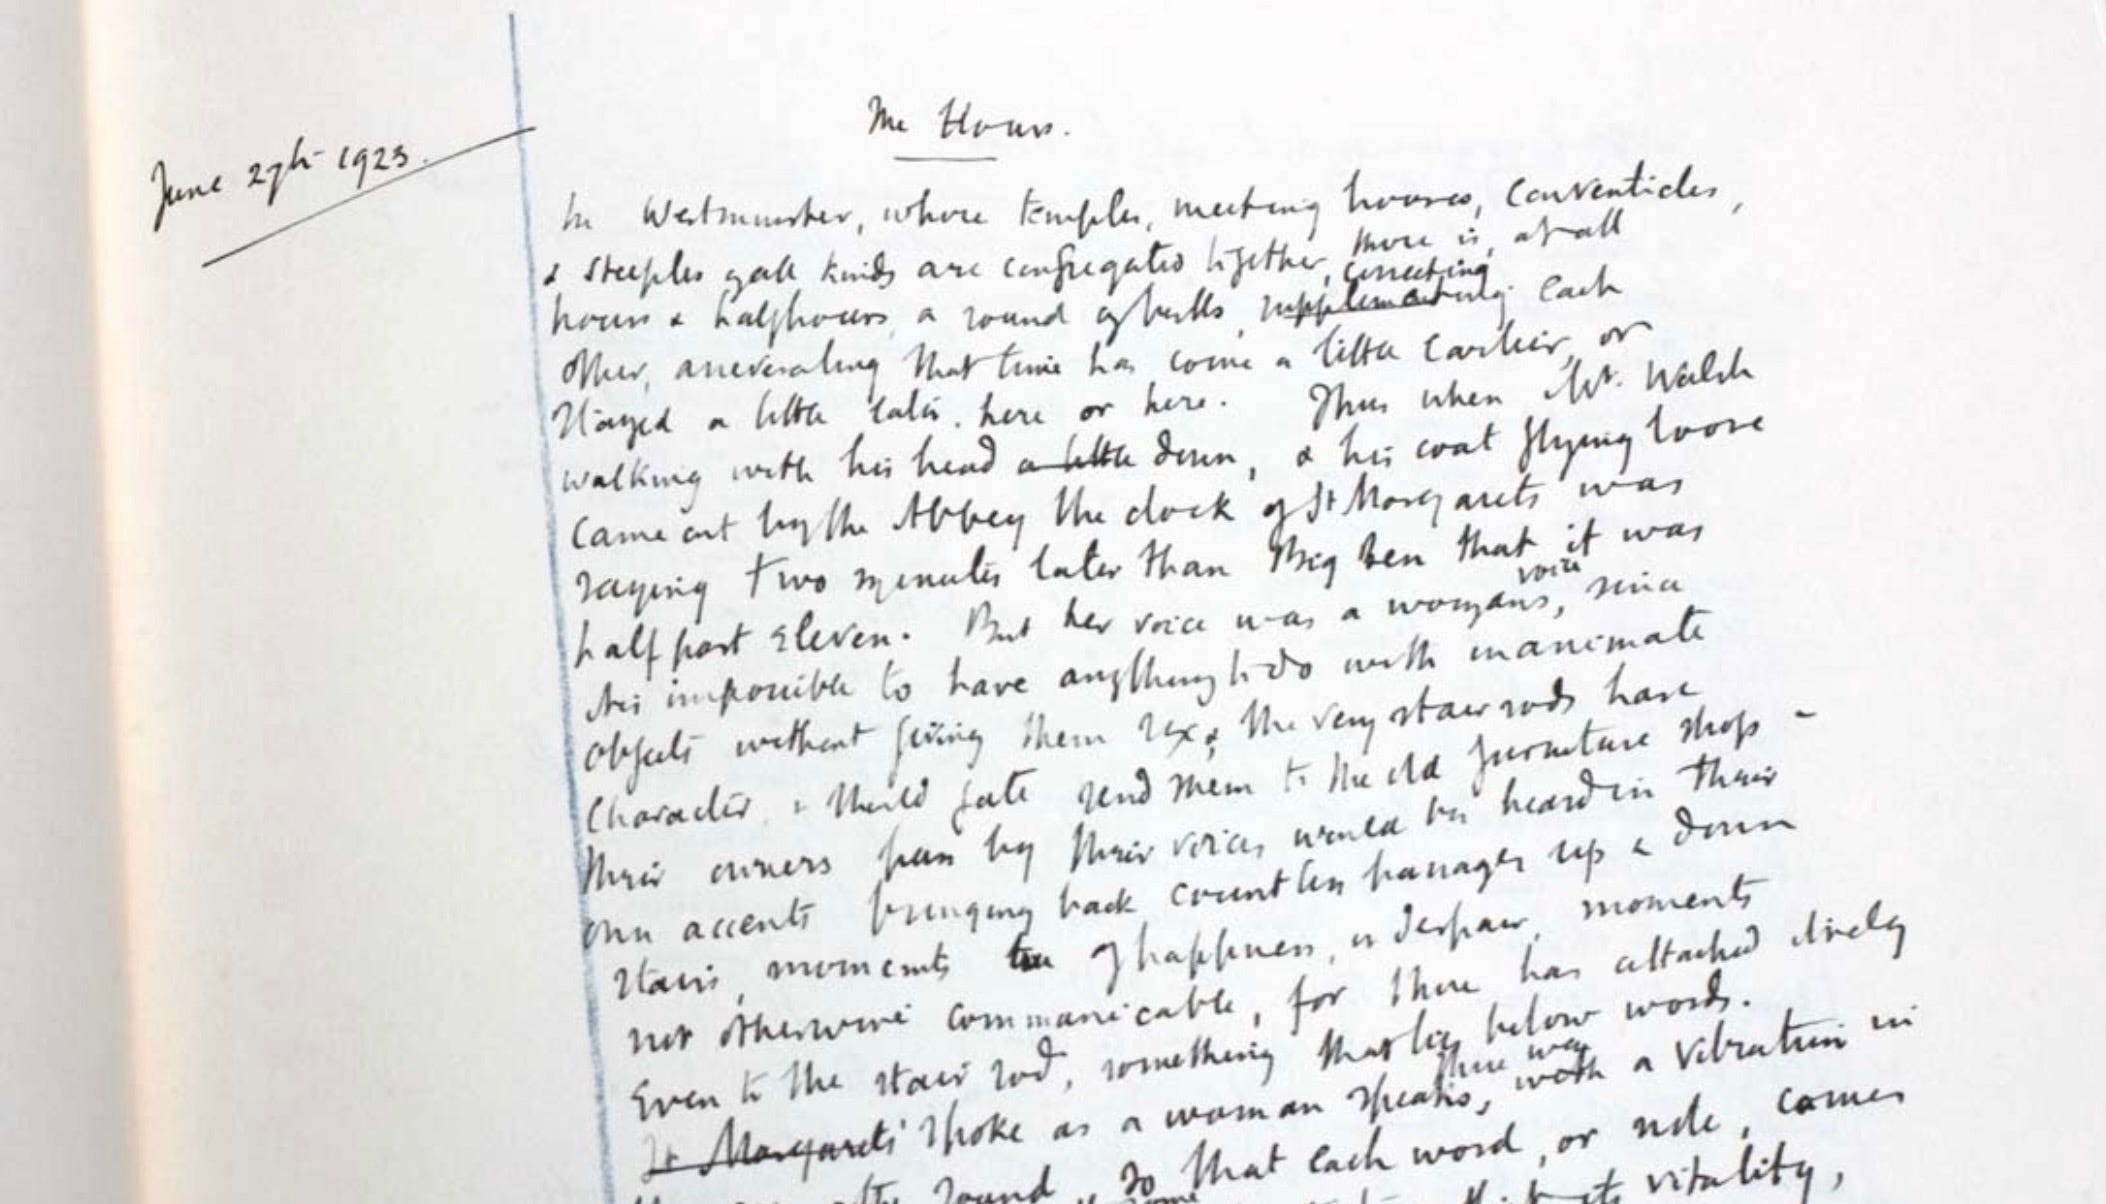 The Hours.
June 27th 1923.
In Westminster, where temples, meeting houses, conventicles,
& steeples of all kinds are congregated together, there is, at all
correcting
hours & halfhours, a round of bells, supplementing each
other, asseverating that time has come a little earlier, or
stayed a little later, here or here. Thus when Mr. Walsh
walking with his head a little down, & his coat flying loose
came out by the Abbey the clock of St Margarets was
saying two minutes later than Big Ben that it was
voice
half past eleven. But her voice was a womans, since
it is impossible to have anything to do with inanimate
objects without giving them sex; the very stair rods have
character, & should fate send them to the old furniture shops –
their owners pass by their voices would be heard in their
own accents bringing back countless passages up & down
stairs, moments of happiness, or despair, moments
not otherwise communicable, for there has attached itself
even to the stair rod, something that lies below words.
there was
St Margarets spoke as a woman speaks, with a vibration in
sound, so that each word, or note, comes
vitality,